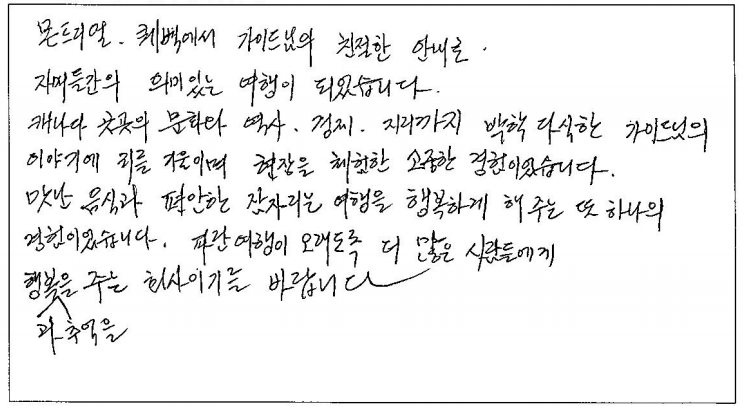 몬트리얼. 퀘벡에서 가이드님의 친절한 안내로.
자매들간의 의미있는 여행이 되었습니다.
캐나다 곳곳의 문화와 역사. 경제. 지리까지 박학다식한 가이드님의
이야기에 귀를 기울이며 현장을 체험한 소중한 경험이었습니다.
맛난 음식과 편안한 잠자리는 여행을 행복하게 해주는 또 하나의
경험이었습니다. 파란여행이 오래도록 더 많은 사람들에게
행복을 주는 회사이기를 바랍니다
과 추억을